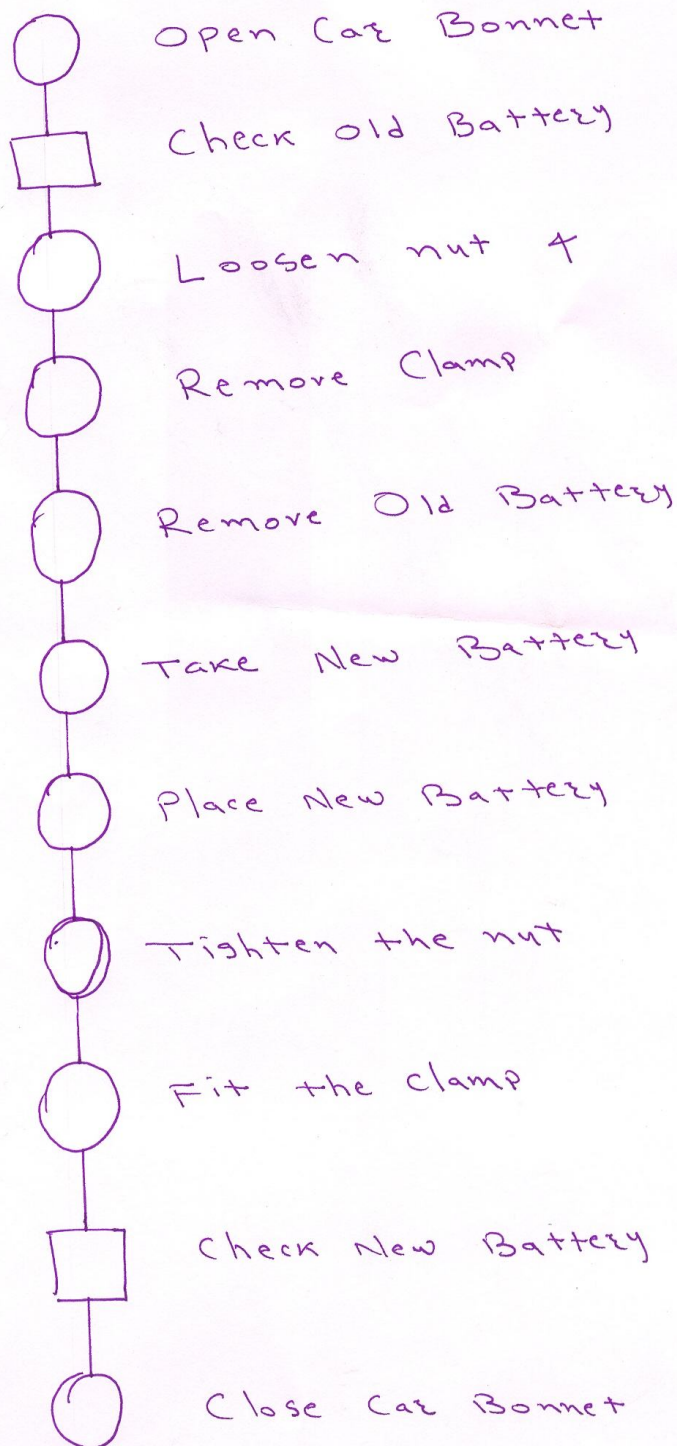 Open Car Bonnet
Check Old Battery
Loosen nut 4
Remove Clamp
Remove Old Battery
Take New Battery
Place New Battery
Tighten the nut
Fit the clamp
Check New Battery
Close Car Bonnet